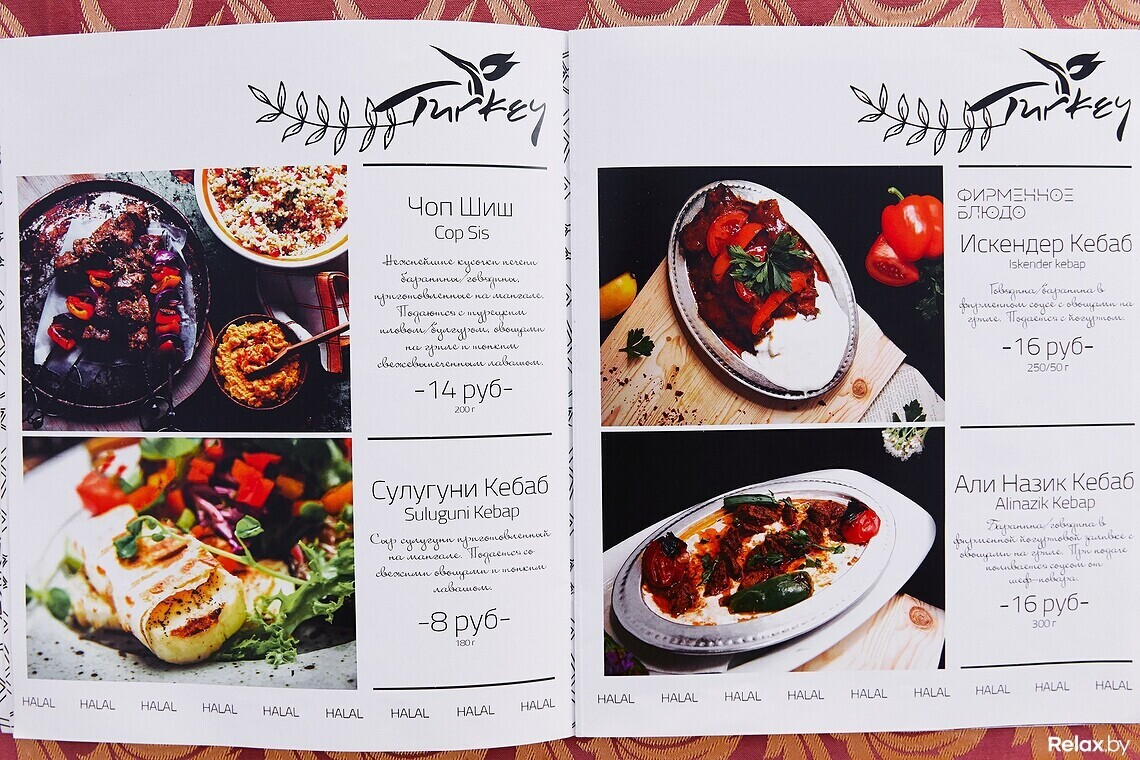 Turkey
Чоп Шиш
Cop Sis
Нежнейшие кусочки печени
баранины/говядины,
приготовленные на мангале.
Подаются с турецким
пловом/булгуром, овощами
на гриле и тонким
свежевыпеченным лавашом.
-14 руб-
200 г
Сулугуни Кебаб
Suluguni Kebap
Сыр сулугуни приготовленный
на мангале. Подается со
свежими овощами и тонким
лавашом.
-8 руб-
180 г
HALAL HALAL HALAL HALAL HALAL HALAL HALAL HALAL HALAL
Turkey
ФИРМЕННОЕ
БЛЮДО
Искендер Кебаб
Iskender kebap
Говядина/баранина в
фирменном соусе с овощами на
гриле. Подается с йогуртом.
-16 руб-
250/50 г
Али Назик Кебаб
Alinazik Kebap
Баранина/говядина в
фирменной йогуртовой заливке с
овощами на гриле. При подаче
поливается соусом от
шеф-повара.
-16 руб-
300 г
HALAL HALAL HALAL HALAL HALAL HALAL HALAL HALAL HALAL
Relax.by